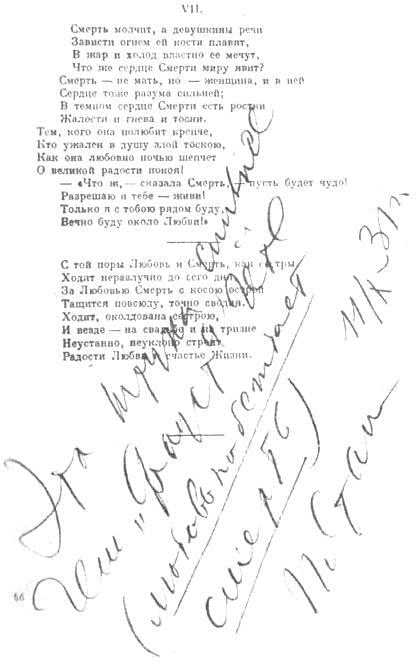 VII.
Смерть молчит, а девушкины речи
Зависти огнем ей кости плавят,
В жар и холод властно ее мечут,
Что же сердце Смерти миру явит?
Смерть — не мать, но — женщина, и в ней
Сердце тоже разума сильней;
В темном сердце Смерти есть ростки
Жалости и гнева и тоски.
Тем, кого она полюбит крепче,
Кто ужален в душу злой тоскою,
Как она любовно ночью шепчет
О великой радости покоя!
— «Что ж, — сказала Смерть, — пусть будет чудо!
Разрешаю я тебе — живи!
Только я с тобою рядом буду,
Вечно буду около Любви!»
С той поры Любовь и Смерть, как сестры,
Ходят неразлучно до сего дня,
За Любовью Смерть с косою острой
Тащится повсюду, точно сводня.
Ходит, околдована сестрою,
И везде — на свадьбе и на тризне
Неустанно, неуклонно строит
Радости Любви и счастье Жизни.
Эта штука сильнее
чем „Фауст" Гёте
(любовь побеждает
смерть)
И. Стали
11/X 31 г.
66